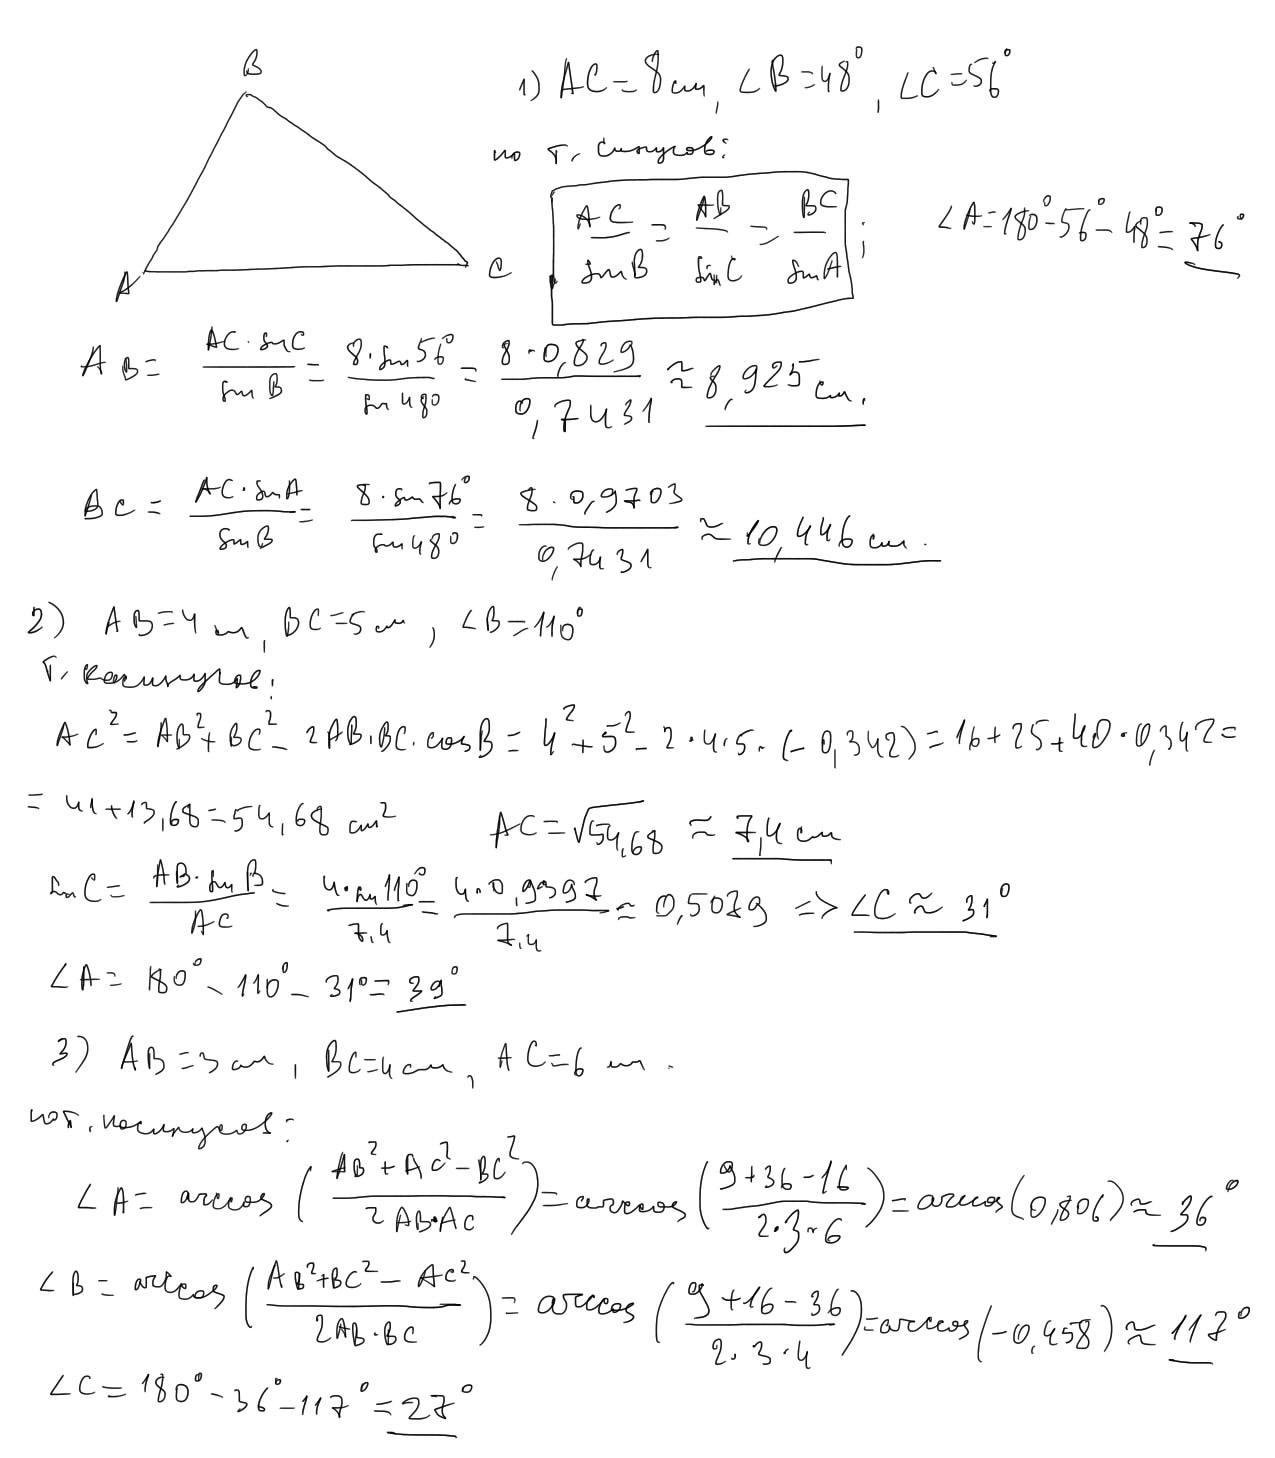 B
A
C
1) AC = 8 cm, ∠B = 48°, ∠C = 56°
по т. синусов:
AC/sin B = AB/sin C = BC/sin A ;
∠A = 180° - 56° - 48° = 76°
AB = (AC · sin C)/(sin B) = (8 · sin 56°)/(sin 48°) = (8 · 0,829)/(0,7431) ≈ 8,925 cm.
BC = (AC · sin A)/(sin B) = (8 · sin 76°)/(sin 48°) = (8 · 0,9703)/(0,7431) ≈ 10,446 cm.
2) AB = 4 cm, BC = 5 cm, ∠B = 110°
т. косинусов:
AC² = AB² + BC² - 2AB·BC·cos B = 4² + 5² - 2·4·5·(-0,342) = 16 + 25 + 40 · 0,342 =
= 41 + 13,68 = 54,68 cm² AC = √54,68 ≈ 7,4 cm
sin C = (AB · sin B)/(AC) = (4 · sin 110°)/(7,4) = (4 · 0,9397)/(7,4) ≈ 0,5079 => ∠C ≈ 31°
∠A = 180° - 110° - 31° = 39°
3) AB = 3 cm, BC = 4 cm, AC = 6 cm.
по т. косинусов:
∠A = arccos ((AB² + AC² - BC²)/(2AB·AC)) = arccos ((9 + 36 - 16)/(2·3·6)) = arccos (0,806) ≈ 36°
∠B = arccos ((AB² + BC² - AC²)/(2AB·BC)) = arccos ((9 + 16 - 36)/(2·3·4)) = arccos (-0,458) ≈ 117°
∠C = 180° - 36° - 117° = 27°